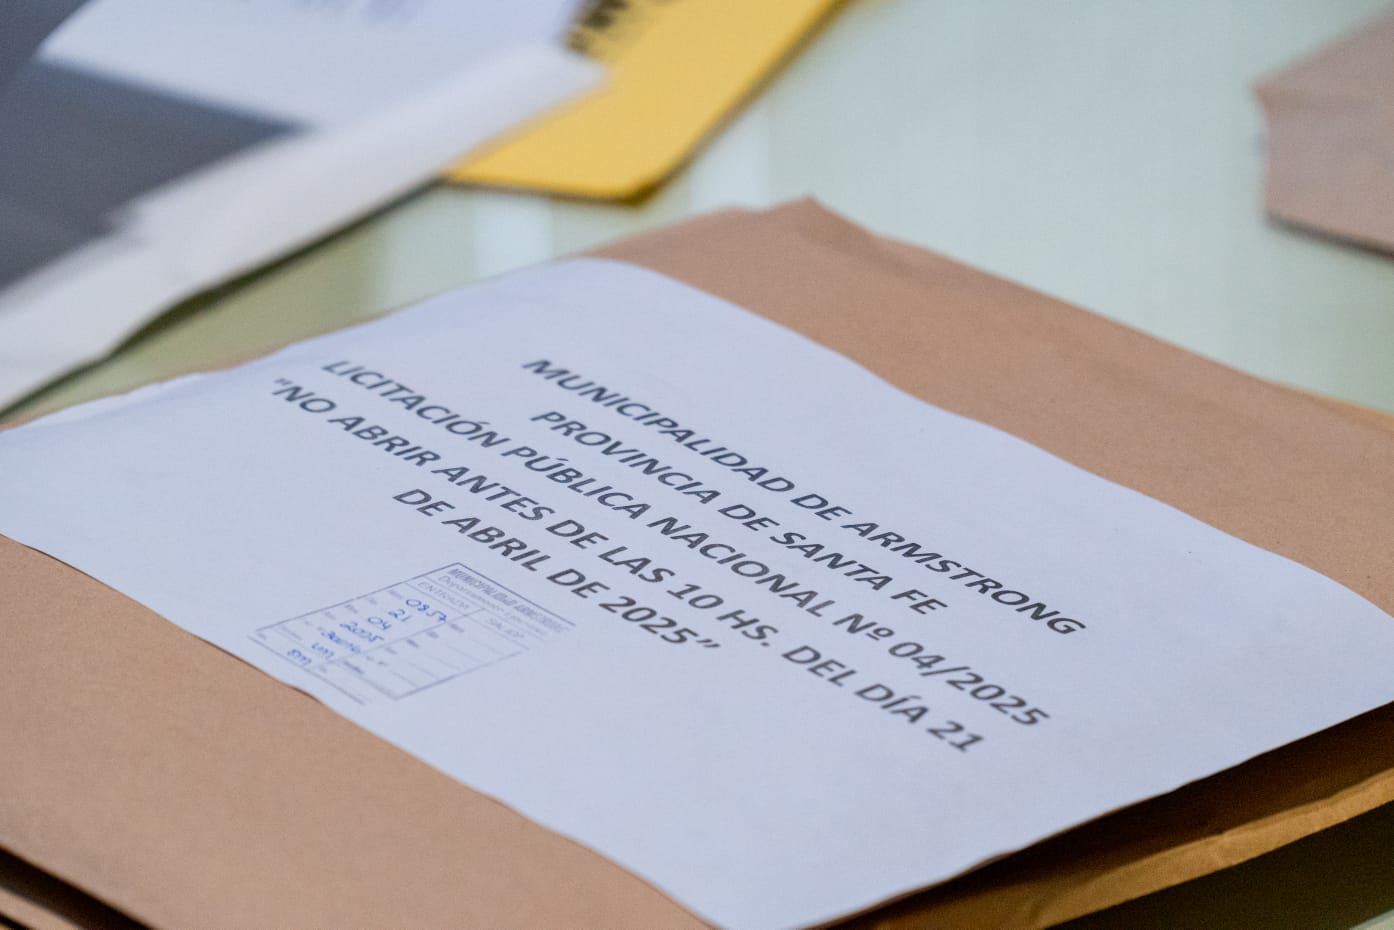 MUNICIPALIDAD DE ARMSTRONG
PROVINCIA DE SANTA FE
LICITACIÓN PÚBLICA NACIONAL Nº 04/2025
"NO ABRIR ANTES DE LAS 10 HS. DEL DÍA 21
DE ABRIL DE 2025"
MUNICIPALIDAD ARMSTRONG
Departamento
ENTRADA
0857
21
04
2025